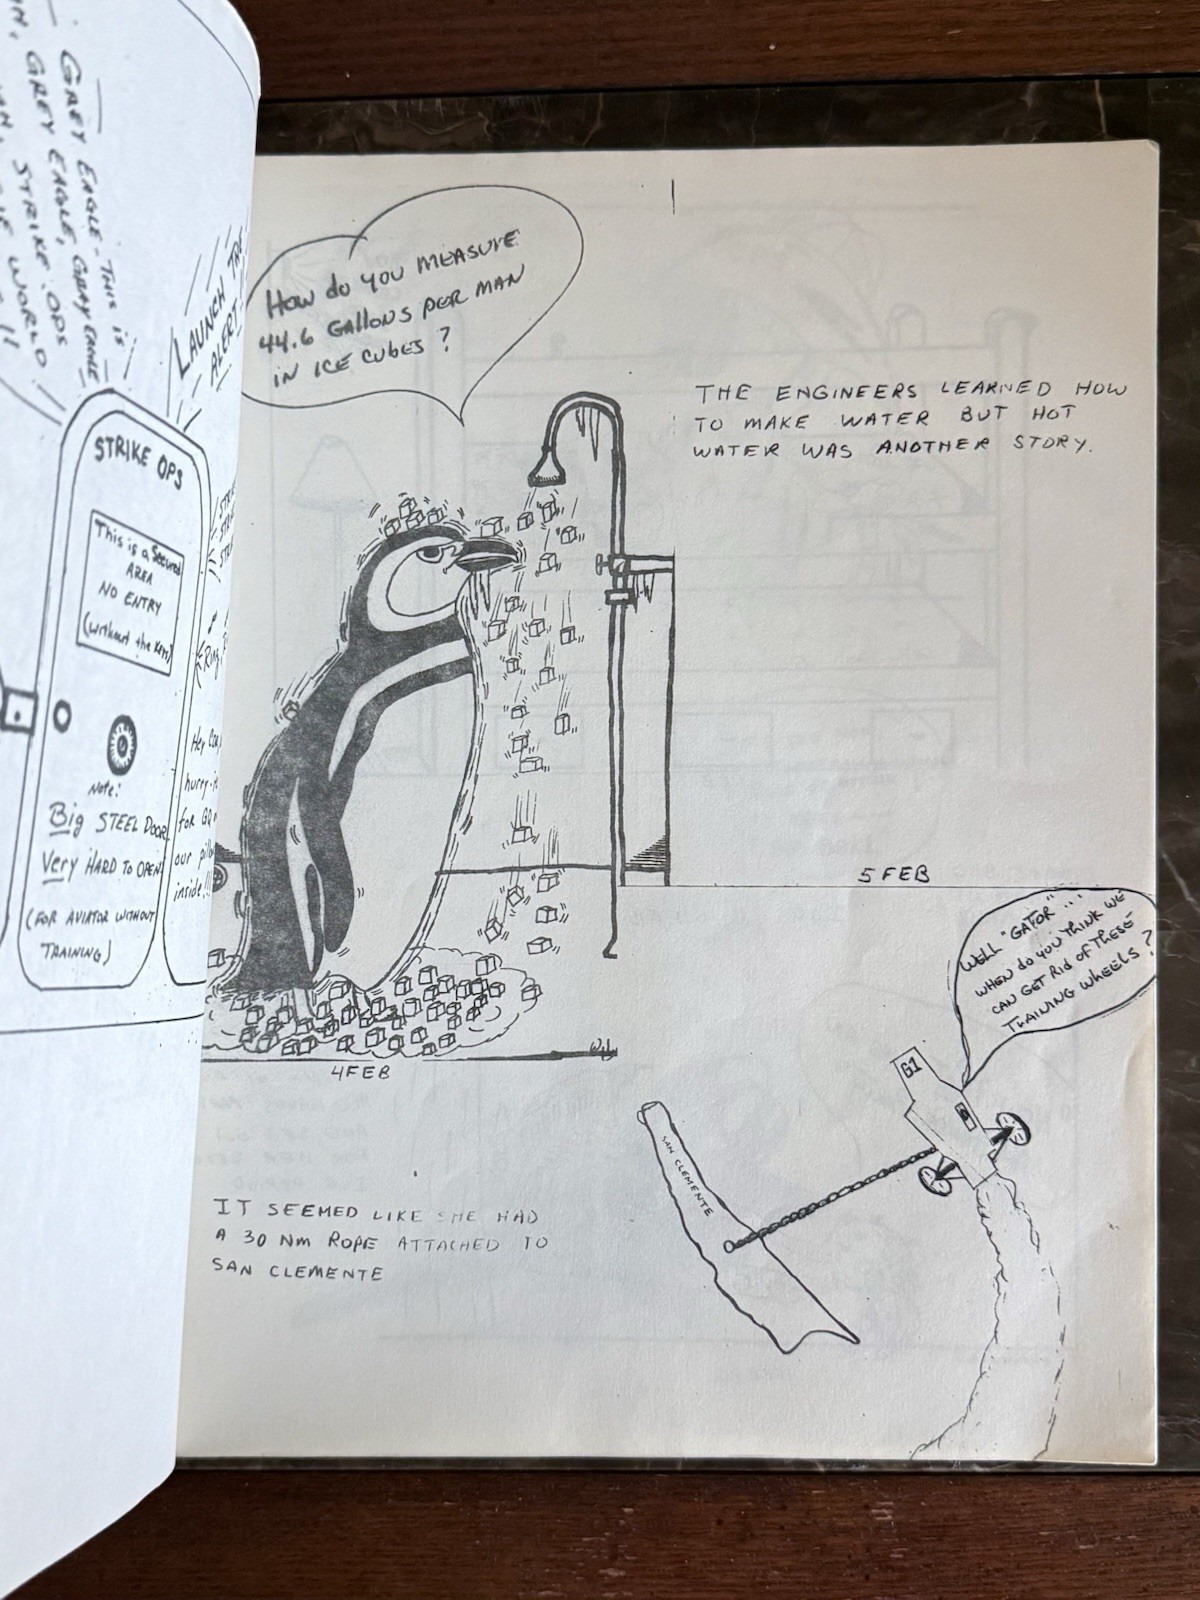 GREY EAGLE-THIS IS
GREY EAGLE, GRAY EAGLE
STRIKE OPS
WORLD
!!
LAUNCH THE
ALERT
STRIKE OPS
This is a Secured
AREA
NO ENTRY
(without the Key)
Note:
Big STEEL DOOR
Very HARD TO OPEN
(FOR AVIATOR WITHOUT
TRAINING)
Hey
hurry-
for
our
inside!!!
How do you MEASURE
44.6 GALLONS PER MAN
IN ICE CUBES?
THE ENGINEERS LEARNED HOW
TO MAKE WATER BUT HOT
WATER WAS ANOTHER STORY.
4 FEB
5 FEB
WELL "GATOR"...
WHEN do you THINK WE
CAN GET Rid of THESE
TRAINING WHEELS?
G1
SAN CLEMENTE
IT SEEMED LIKE SHE HAD
A 30 NM ROPE ATTACHED TO
SAN CLEMENTE